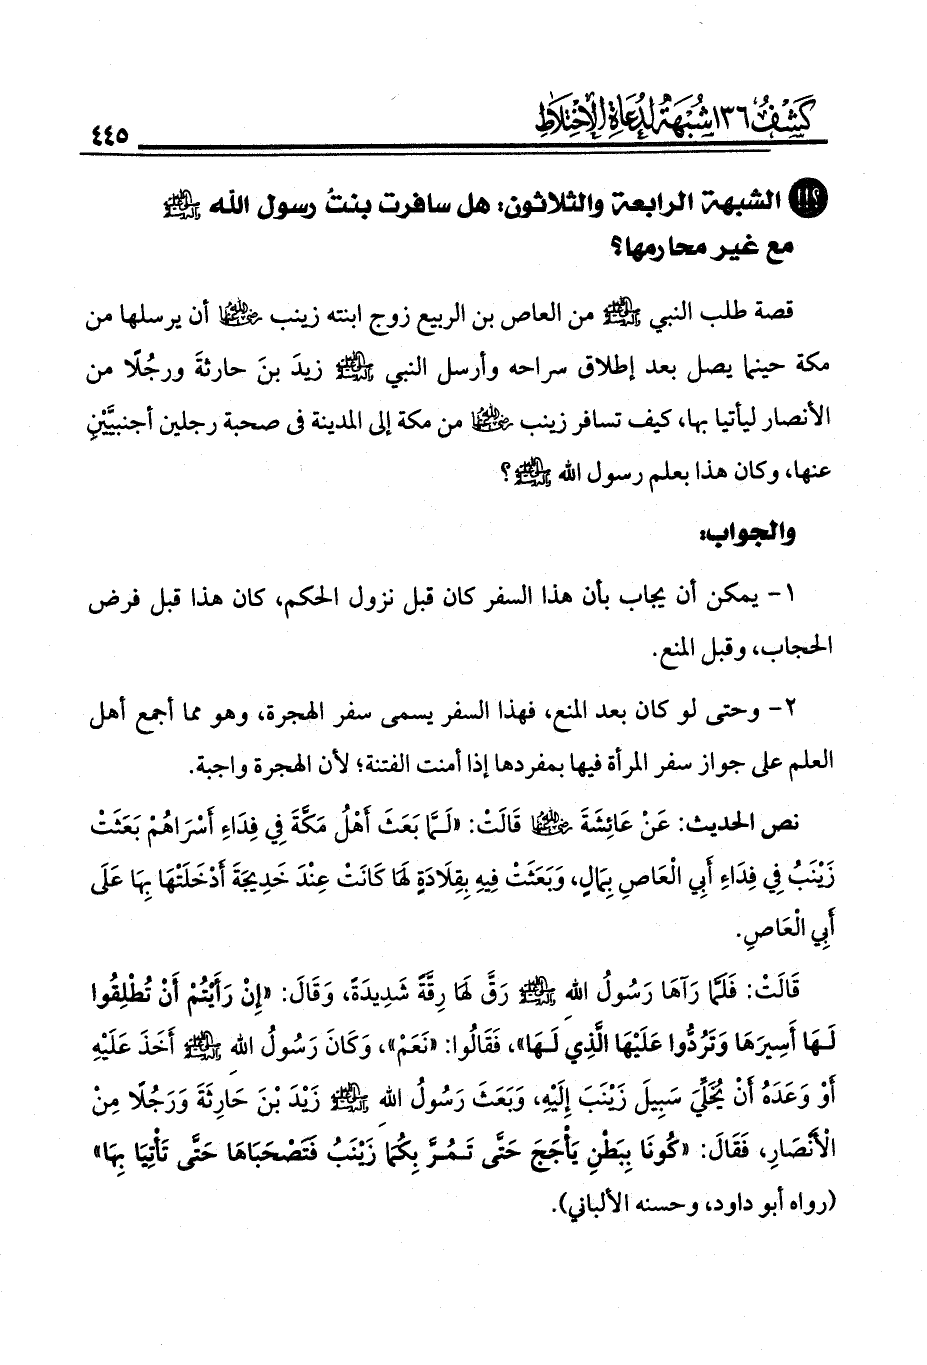 كشف ١٣٦ شبهة لدعاة الاختلاط
٤٤٥
الشبهة الرابعة والثلاثون: هل سافرت بنتُ رسول الله ﷺ
مع غير محارمها؟
قصة طلب النبي ﷺ من العاص بن الربيع زوج ابنته زينب رضي الله عنها أن يرسلها من
مكة حينما يصل بعد إطلاق سراحه وأرسل النبي ﷺ زيدَ بنَ حارثةَ ورجُلًا من
الأنصار ليأتيا بها، كيف تسافر زينب رضي الله عنها من مكة إلى المدينة فى صحبة رجلين أجنبيَّيْنِ
عنها، وكان هذا بعلم رسول الله ﷺ؟
والجواب:
١- يمكن أن يجاب بأن هذا السفر كان قبل نزول الحكم، كان هذا قبل فرض
الحجاب، وقبل المنع.
٢- وحتى لو كان بعد المنع، فهذا السفر يسمى سفر الهجرة، وهو مما أجمع أهل
العلم على جواز سفر المرأة فيها بمفردها إذا أمنت الفتنة؛ لأن الهجرة واجبة.
نص الحديث: عَنْ عَائِشَةَ رضي الله عنها قَالَتْ: «لَـمَّا بَعَثَ أَهْلُ مَكَّةَ فِي فِدَاءِ أَسْرَاهُمْ بَعَثَتْ
زَيْنَبُ فِي فِدَاءِ أَبِي الْعَاصِ بِمَالٍ، وَبَعَثَتْ فِيهِ بِقِلَادَةٍ لَهَا كَانَتْ عِنْدَ خَدِيجَةَ أَدْخَلَتْهَا بِهَا عَلَى
أَبِي الْعَاصِ.
قَالَتْ: فَلَمَّا رَآهَا رَسُولُ اللهِ ﷺ رَقَّ لَهَا رِقَّةً شَدِيدَةً، وَقَالَ: «إِنْ رَأَيْتُمْ أَنْ تُطْلِقُوا
لَـهَا أَسِيرَهَا وَتَرُدُّوا عَلَيْهَا الَّذِي لَـهَا»، فَقَالُوا: «نَعَمْ»، وَكَانَ رَسُولُ اللهِ ﷺ أَخَذَ عَلَيْهِ
أَوْ وَعَدَهُ أَنْ يُخَلِّيَ سَبِيلَ زَيْنَبَ إِلَيْهِ، وَبَعَثَ رَسُولُ اللهِ ﷺ زَيْدَ بْنَ حَارِثَةَ وَرَجُلًا مِنْ
الْأَنْصَارِ، فَقَالَ: «كُونَا بِبَطْنِ يَأْجَجَ حَتَّى تَـمُـرَّ بِكُمَا زَيْنَبُ فَتَصْحَبَاهَا حَتَّى تَأْتِيَا بِهَا»
(رواه أبو داود، وحسنه الألباني).